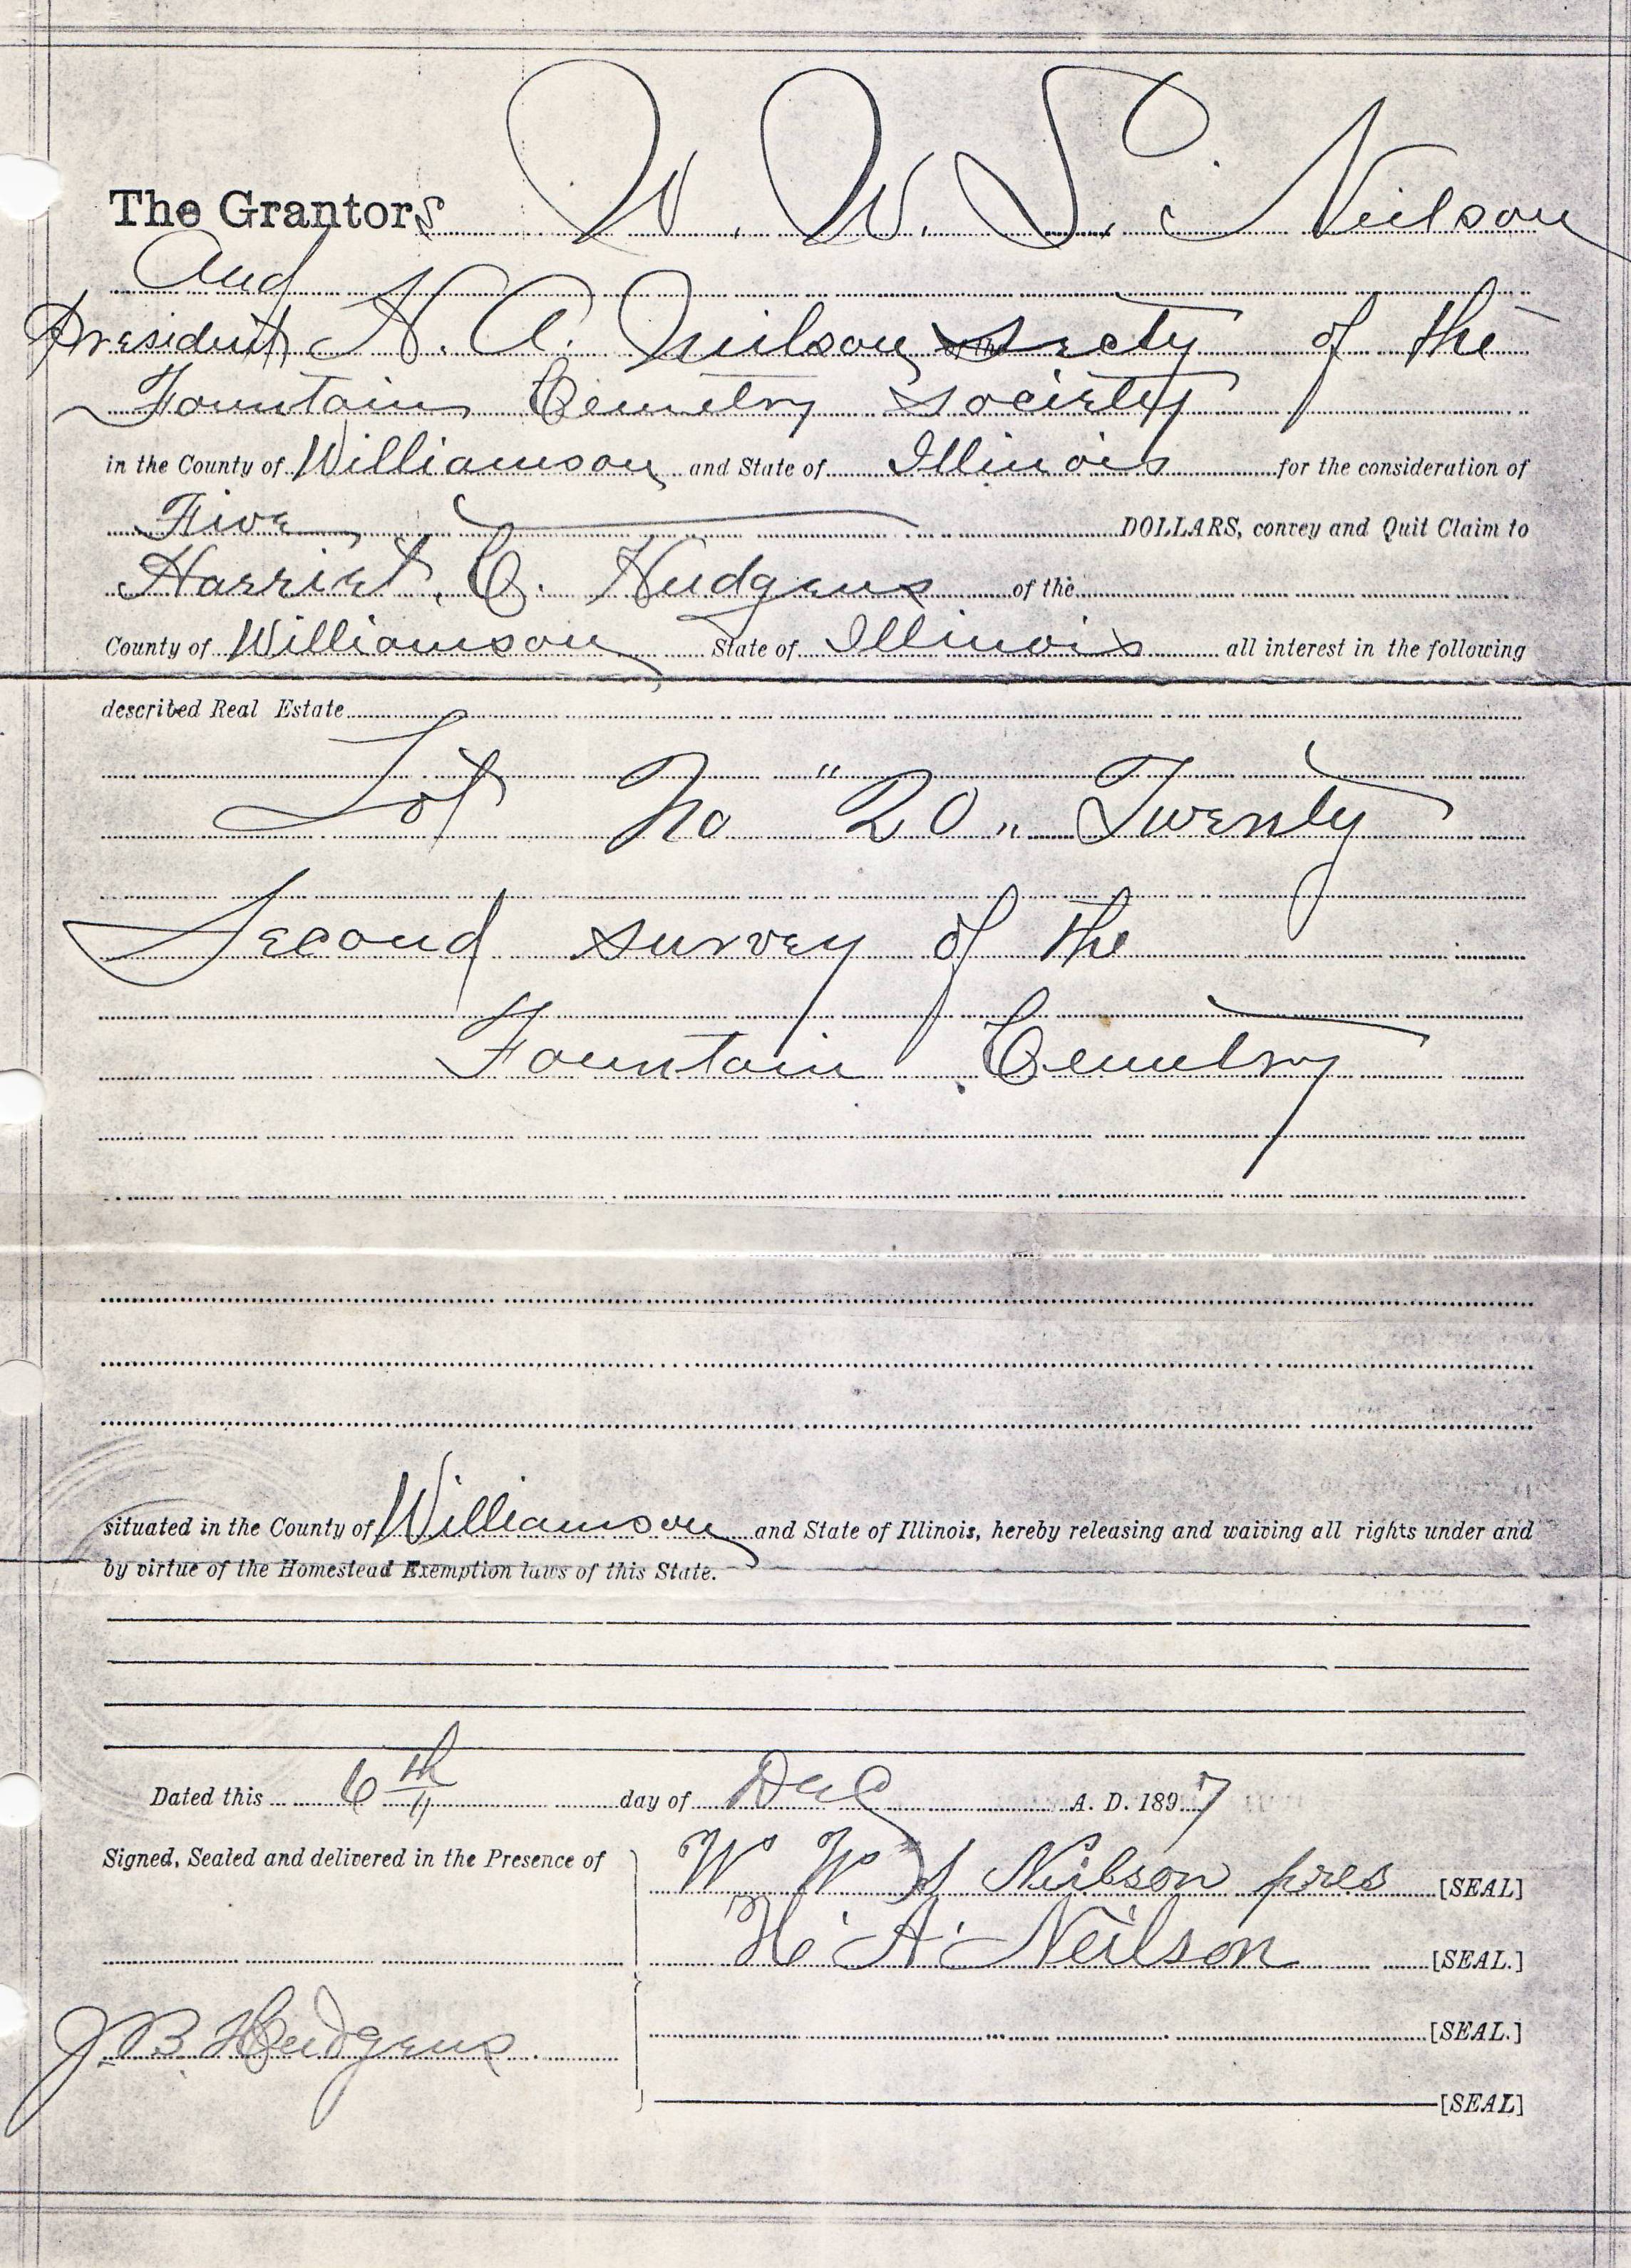 The Grantors W. W. S. Neilson
And
President H. A. Neilson secty of the
Fountain Cemetry Society
in the County of Williamson and State of Illinois for the consideration of
Five DOLLARS, convey and Quit Claim to
Harriet. C. Hudgens of the
County of Williamson State of Illinois all interest in the following
described Real Estate
Lot No "20" Twenty
Second survey of the
Fountain Cemetry
situated in the County of Williamson and State of Illinois, hereby releasing and waiving all rights under and
by virtue of the Homestead Exemption laws of this State.
Dated this 6th day of Dec A. D. 1897
Signed, Sealed and delivered in the Presence of
W W S Neilson pres [SEAL]
H. A. Neilson [SEAL.]
J. B. Hudgens. [SEAL.]
[SEAL]